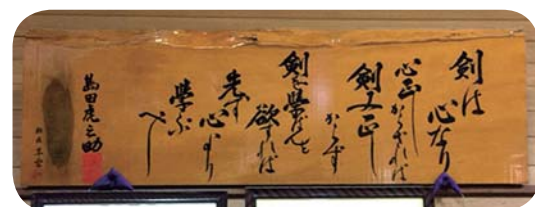 剣は
心なり
心正しからざれば
剣又正し
からず
剣を學ばんと
欲すれば
先づ
心より
學ぶ
べし
島田虎之助